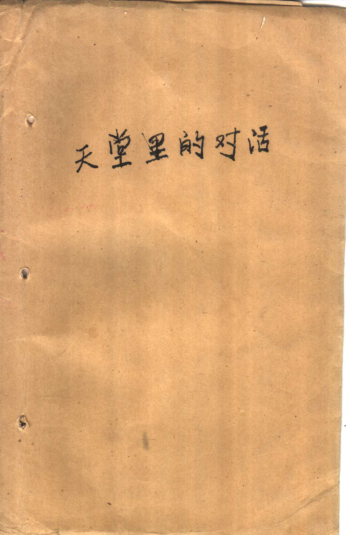 天堂里的对话